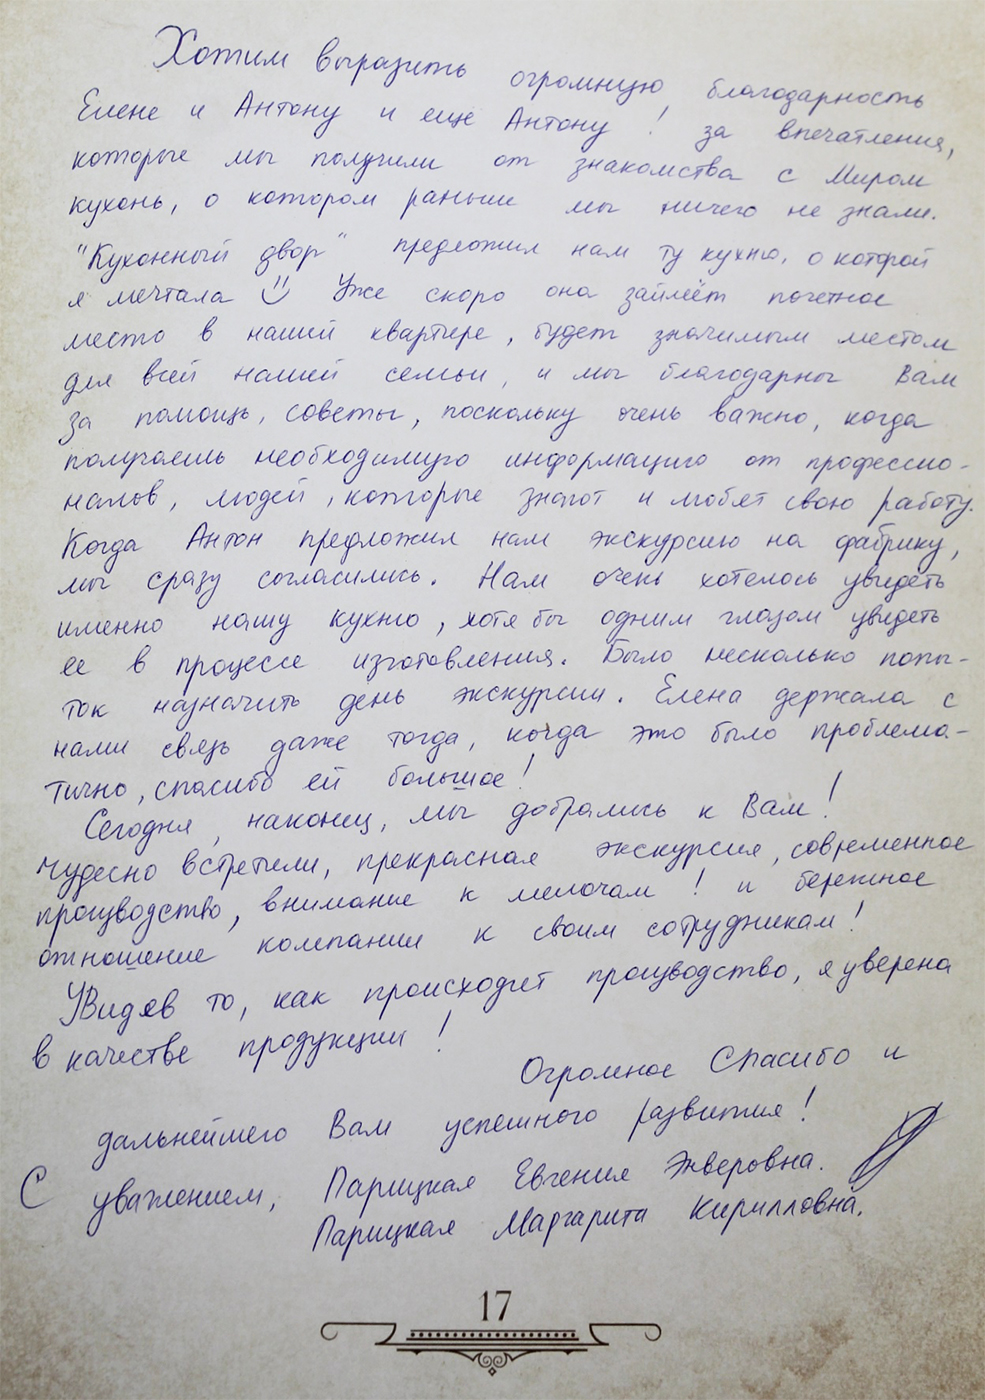 Хотим выразить огромную благодарность
Елене и Антону и еще Антону! за впечатления,
которые мы получили от знакомства с Миром
кухонь, о котором раньше мы ничего не знали.
"Кухонный двор" предложил нам ту кухню, о которой
я мечтала Уже скоро она займёт почетное
место в нашей квартире, будет значимым местом
для всей нашей семьи, и мы благодарны Вам
за помощь, советы, поскольку очень важно, когда
получаешь необходимую информацию от профессио-
налов, людей, которые знают и любят свою работу.
Когда Антон предложил нам экскурсию на фабрику,
мы сразу согласились. Нам очень хотелось увидеть
именно нашу кухню, хотя бы одним глазом увидеть
ее в процессе изготовления. Было несколько попы-
ток назначить день экскурсии. Елена держала с
нами связь даже тогда, когда это было проблема-
тично, спасибо ей большое!
Сегодня, наконец, мы добрались к Вам!
Чудесно встретили, прекрасная экскурсия, современное
производство, внимание к мелочам! и бережное
отношение компании к своим сотрудникам!
Увидев то, как происходит производство, я уверена
в качестве продукции!
Огромное Спасибо и
дальнейшего Вам успешного развития!
С уважением, Парицкая Евгения Экверовна.
Парицкая Маргарита Кирилловна.
17